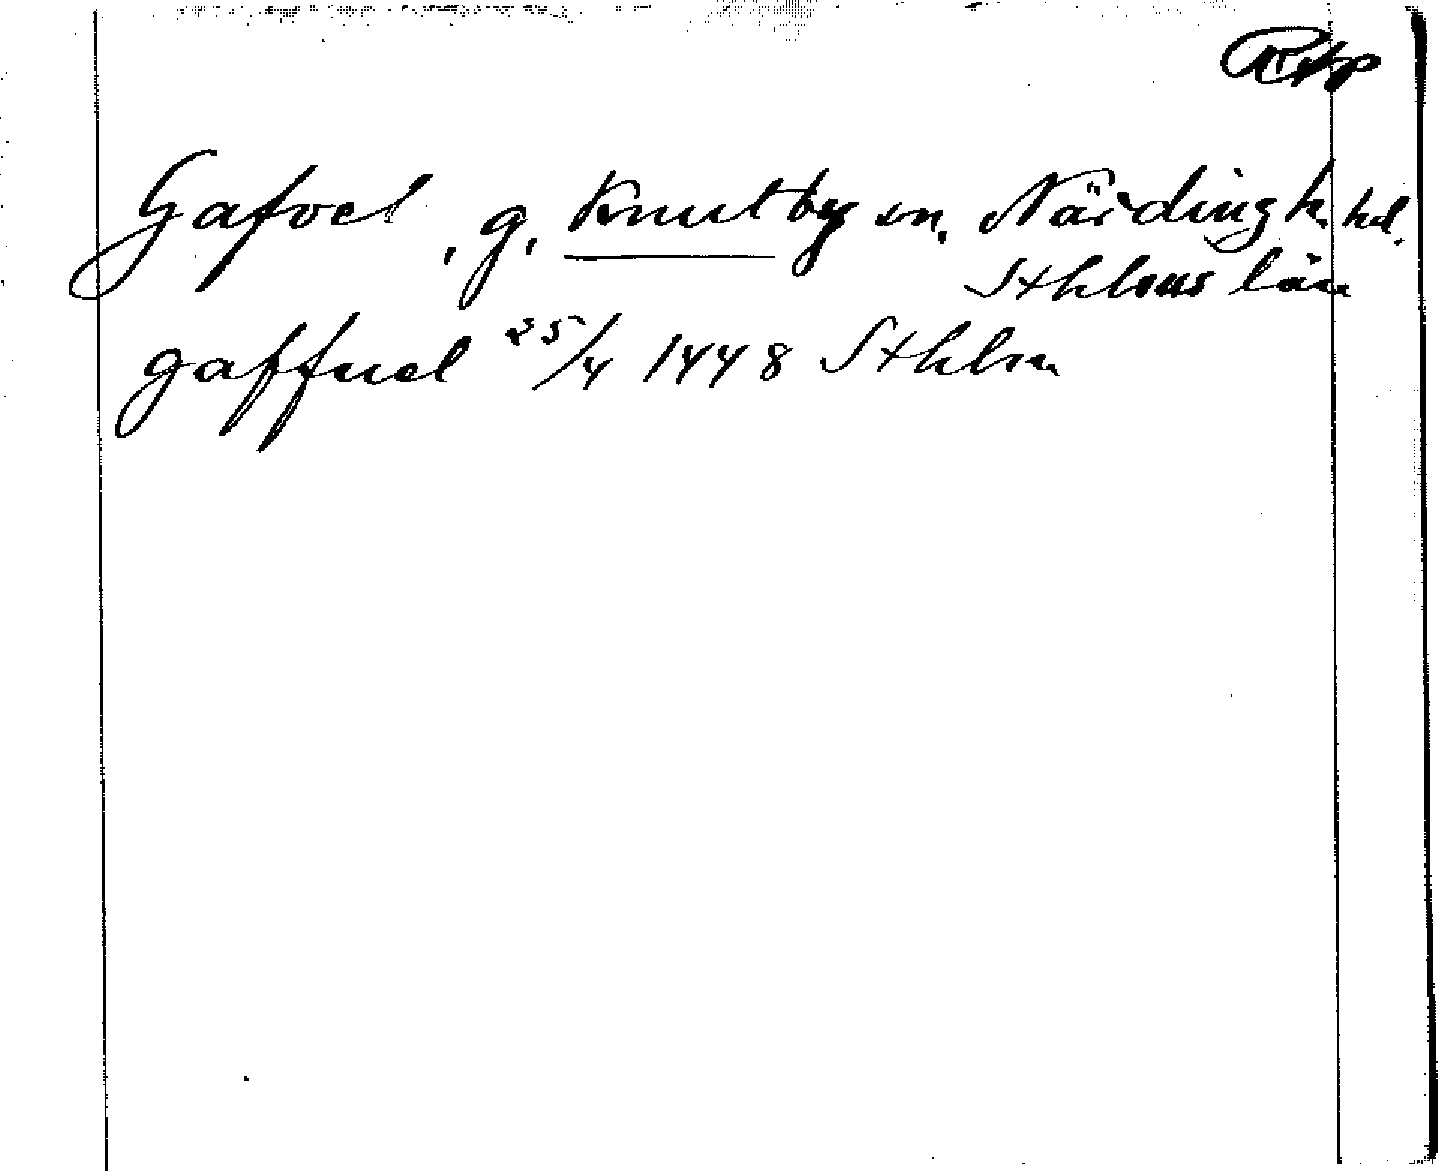 Gafvel, g, Knutby sn, Närdingh. hd.
Sthlms län
gaffuel 25/4 1448 Sthlm